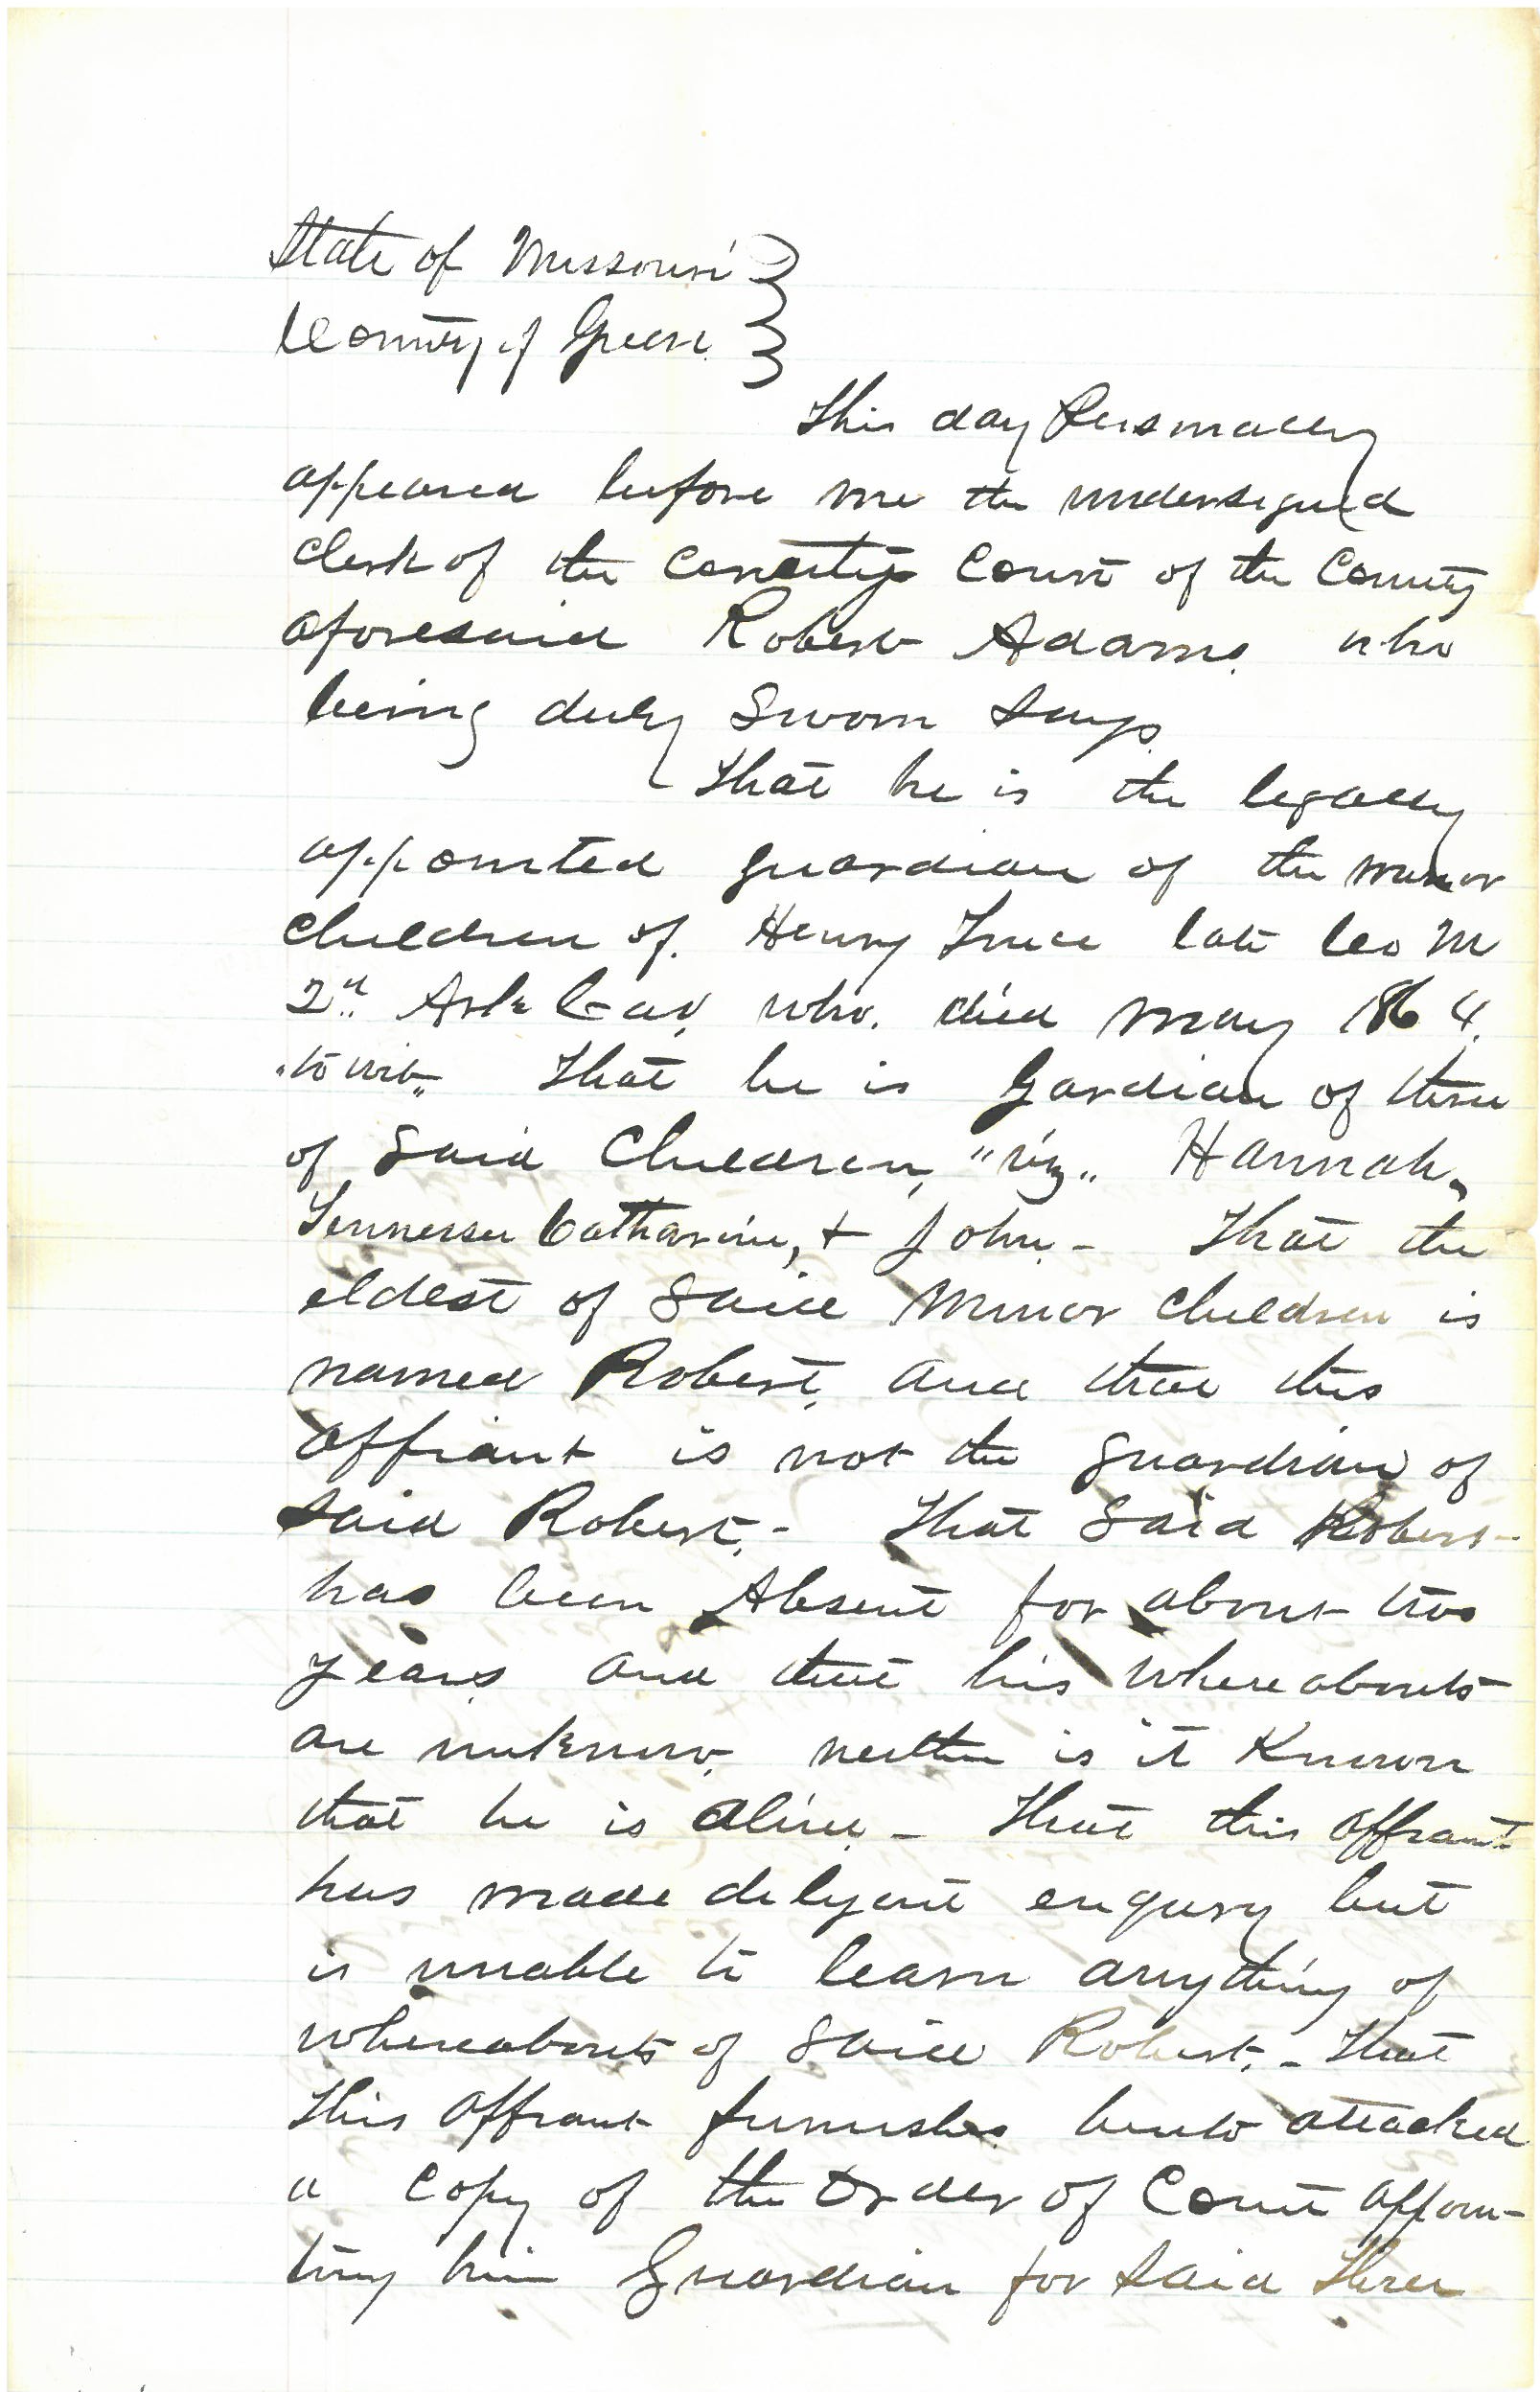 State of Missouri
County of Green
This day Personally
appeared before me the undersigned
clerk of the County Court of the County
aforesaid Robert Adams. who
being duly Sworn Says.
That he is the legally
appointed guardian of the minor
children of. Henry late Co M
2nd Ark Cav. who. died May 1864.
"to wit" That he is Gardian of three
of Said Children, "viz" Hannah,
Tennessee Catharine, & John. - That the
eldest of Said Minor children is
named Robert, and that this
affiant is not the guardian of
Said Robert. - That Said Robert
has been Absent for about two
years and that his whereabouts
are unknow, neither is it Known
that he is alive. - That this affiant
has made diligent enqury but
is unable to learn anything of
whereabouts of Said Robert. - That
this affiant furnishes hereto attached
a Copy of the Order of Court appoin-
ting him Guardian for Said three